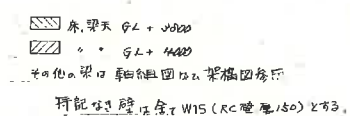 床,梁天 GL + 3800
〃 〃 GL + 4000
その他の梁は 軸組図ないし 架構図参照
特記なき壁は全て W15 (RC壁厚150) とする。